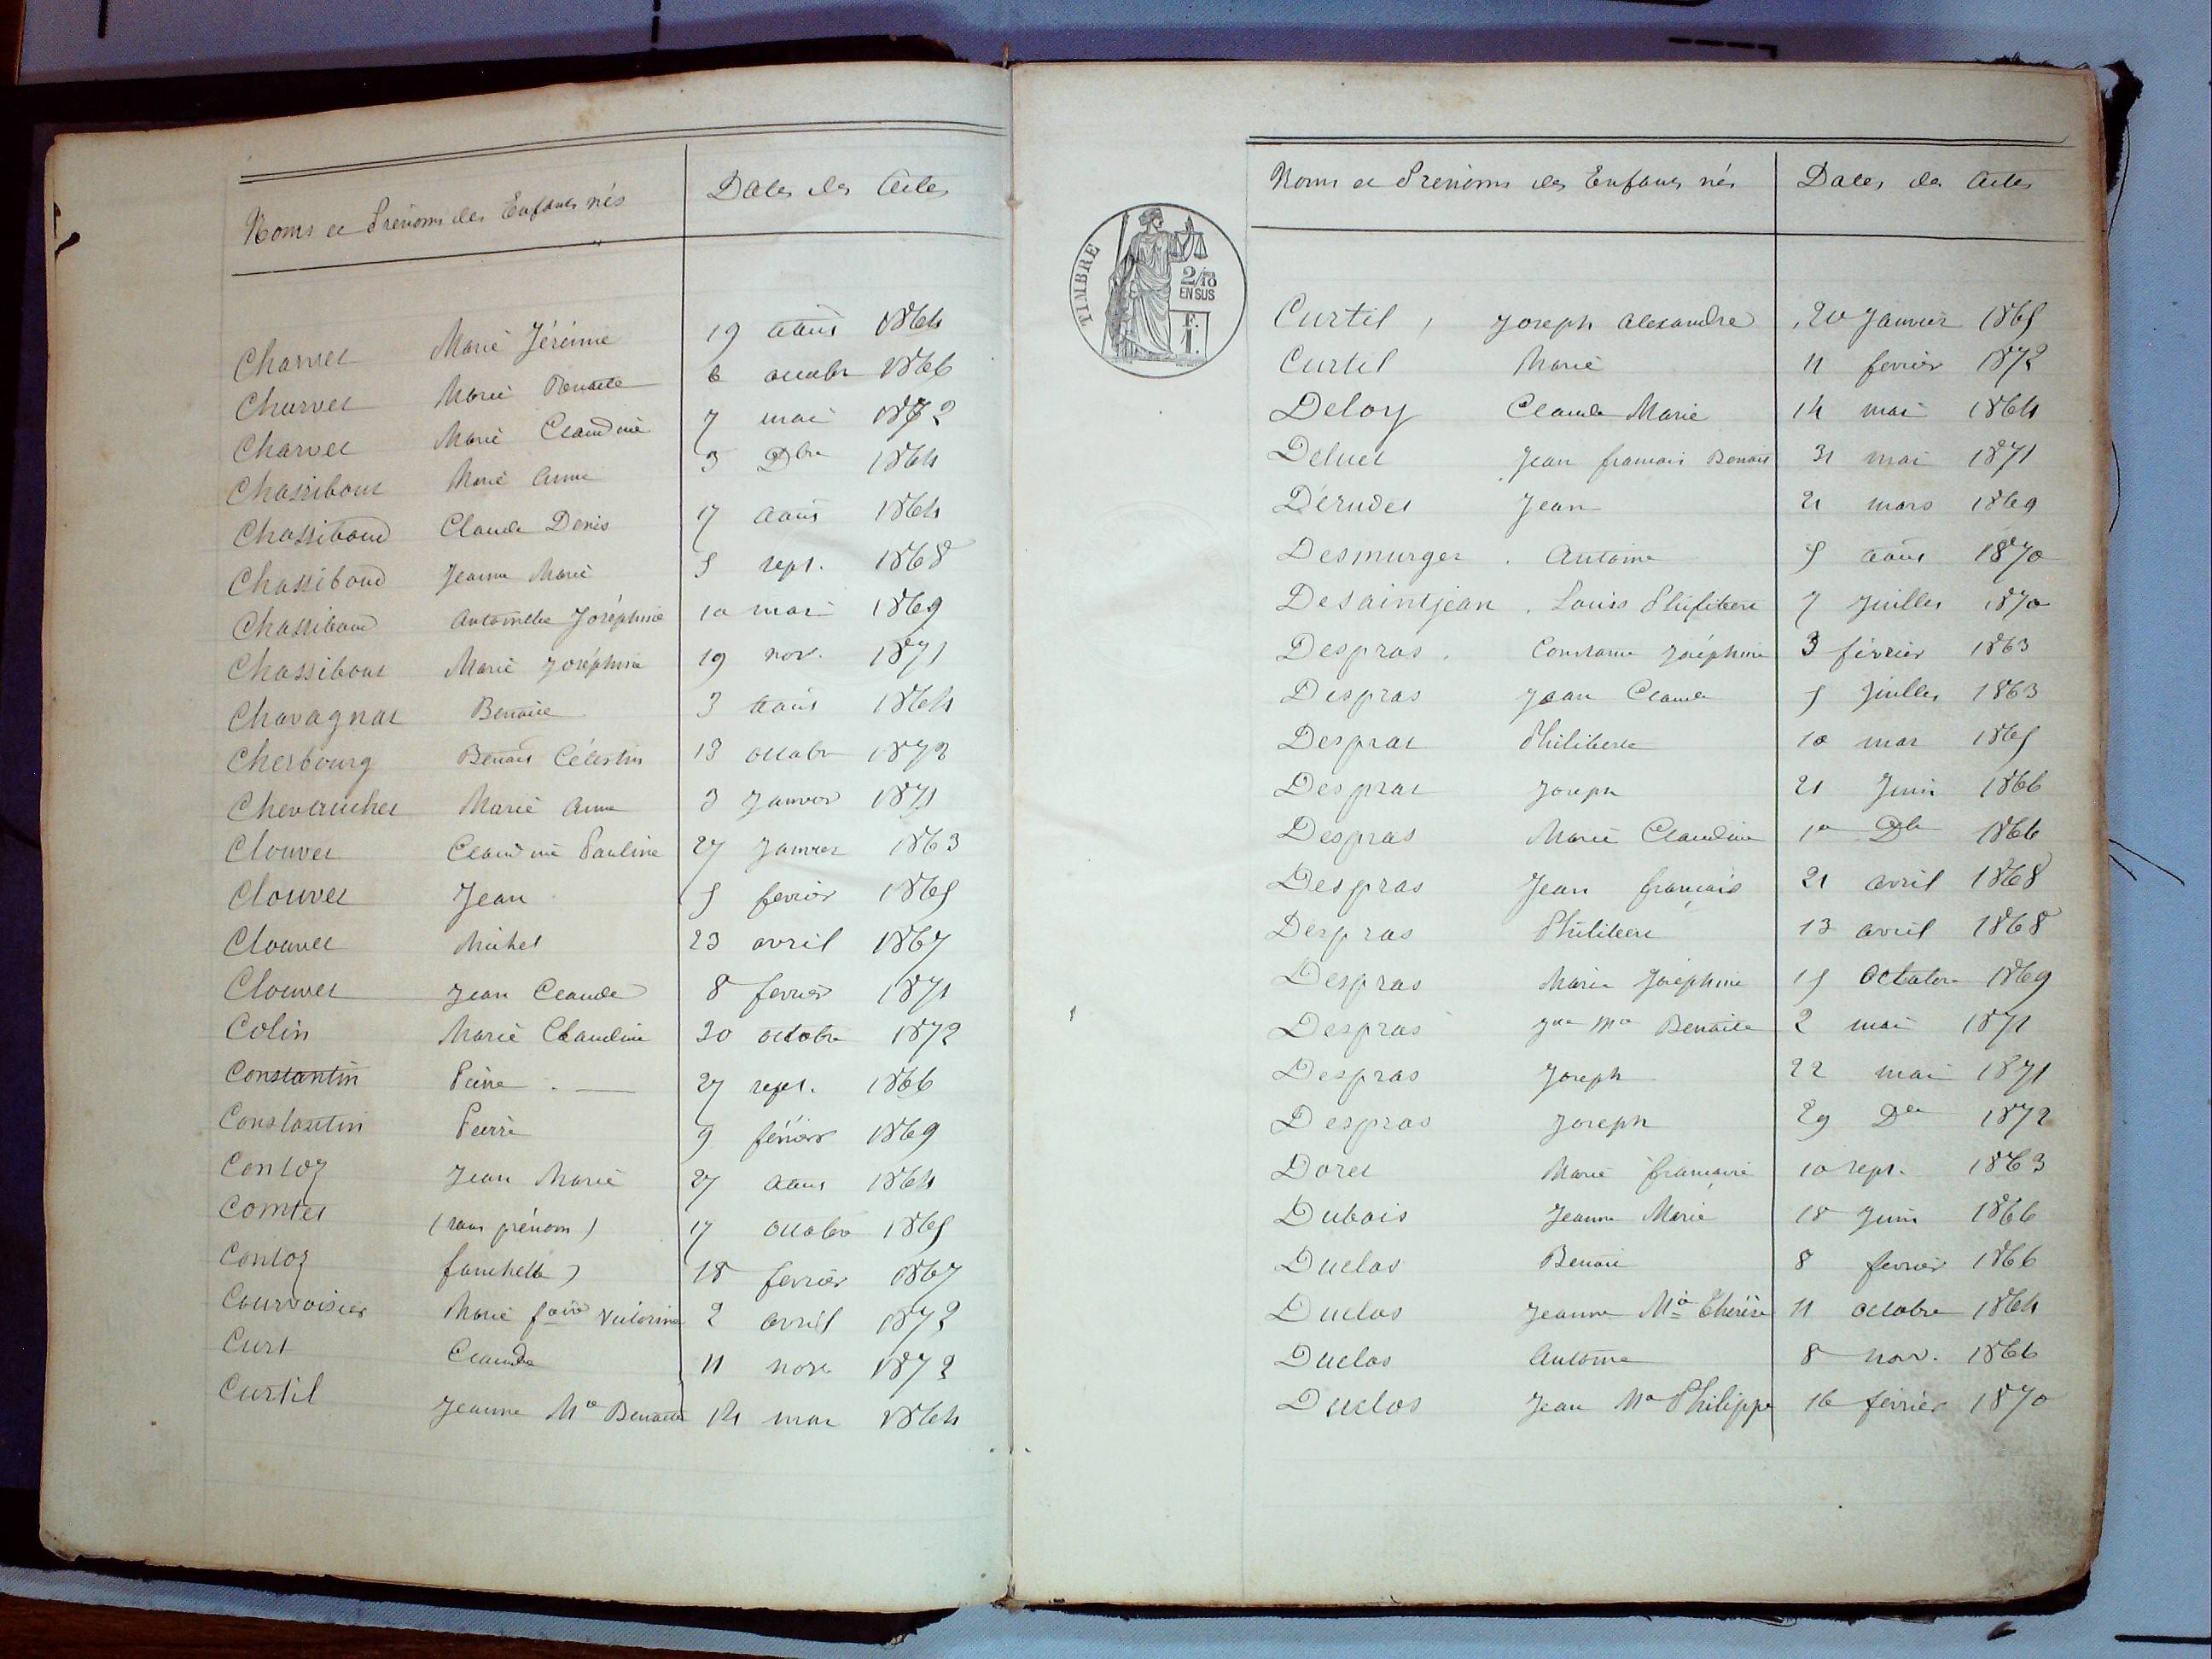 Noms et Prénoms des Enfants nés Dates des Actes
Charvet Marie Jérémie 19 août 1864
Charvet Marie Benoite 6 octobre 1866
Charvet Marie Claudine 7 mai 1872
Chassibout Marie Anne 3 Dbre 1864
Chassiboud Claude Denis 17 août 1864
Chassiboud Jeanne Marie 5 sept. 1868
Chassiboud Antoinette Joséphine 10 mai 1869
Chassibout Marie Joséphine 19 nov. 1871
Chavagnat Benoite 3 août 1864
Cherbourg Benoit Célestin 13 octobre 1872
Chevauchet Marie Anne 3 Janvier 1871
Clouvet Claudine Pauline 27 Janvier 1863
Clouvet Jean 5 fevrier 1865
Clouvet Michel 23 avril 1867
Clouvet Jean Claude 8 fevrier 1871
Colin Marie Claudine 30 octobre 1872
Constantin Pierre 27 sept. 1866
Constantin Pierre 9 février 1869
Contoz Jean Marie 27 août 1864
Comtet (sans prénom) 17 octobre 1865
Contoz fanchette 18 fevrier 1867
Courvoisier Marie fçoise Victorine 2 avril 1872
Curt Claude 11 nove 1872
Curtil Jeanne Ma Benoite 14 mai 1864
TIMBRE
2/10
EN SUS
F.
1.
Noms et Prénoms des Enfants nés Dates des Actes
Curtil, Joseph Alexandre 20 Janvier 1865
Curtil Marie 11 fevrier 1872
Deloy Claude Marie 14 mai 1864
Deluet Jean francois Benoit 31 mai 1871
Dérudet Jean 21 mars 1869
Desmurger. Antoine 5 août 1870
Desaintjean. Louis Philibert 7 Juillet 1870
Despras. Constance Joséphine 3 février 1863
Despras Jean Claude 5 Juillet 1863
Desprat Philiberte 10 mai 1865
Desprat Joseph 21 Juin 1866
Despras Marie Claudine 10 Dbre 1866
Despras Jean francois 21 avril 1868
Despras Philibert 13 avril 1868
Despras Marie Joséphine 15 Octobre 1869
Despras Jne Ma Benoite 2 mai 1871
Despras Joseph 22 mai 1871
Despras Joseph 29 Dbre 1872
Doret Marie francoise 10 sept. 1863
Dubois Jeanne Marie 18 Juin 1866
Duclos Benoit 8 fevrier 1866
Duclos Jeanne Ma Thérèse 11 octobre 1864
Duclos Antoine 8 nov. 1866
Duclos Jean Ma Philippe 16 février 1870